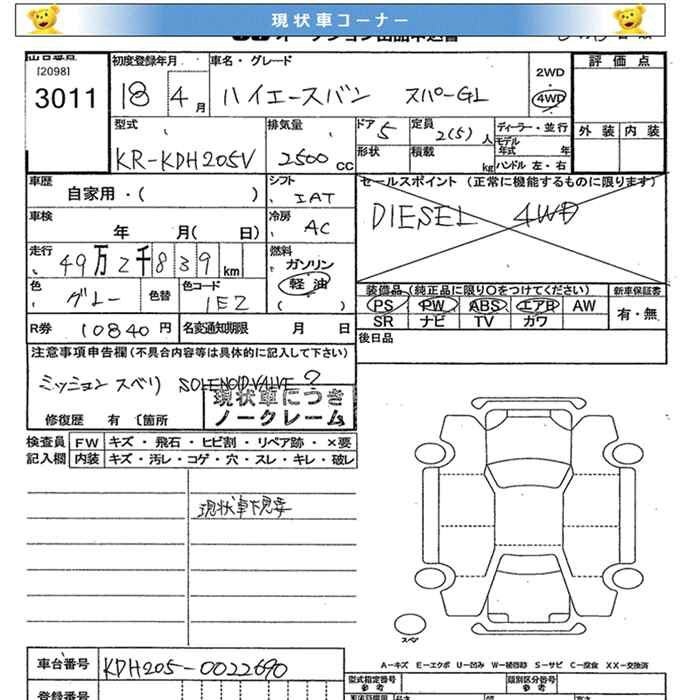 現状車コーナー
[2098]
3011
初度登録年月
18 4月
車名・グレード
ハイエースバン スパーGL
2WD
4WD
評価点
外装 内装
型式
KR-KDH205V
排気量
2500cc
ドア 5
形状
定員 2(5)人
積載 kg
ディーラー・並行
モデル年式 年
ハンドル 左・右
車歴
自家用・( )
シフト
IAT
セールスポイント (正常に機能するものに限ります)
DIESEL 4WD
車検
年 月( 日)
冷房
AC
走行
49万2千839km
燃料
ガソリン
軽油
( )
色
グレー
色替
色コード
1E7
装備品(純正品に限り○をつけてください)
新車保証書
PS PW ABS エアB AW
SR ナビ TV カワ
有・無
R券 10840円
名変通知期限 月 日
後日品
注意事項申告欄(不具合内容等は具体的に記入して下さい)
ミッションスベリ SOLENOID VALVE ?
現状車につき
ノークレーム
修復歴 有 〔箇所
検査員
記入欄
FW キズ・飛石・ヒビ割・リペア跡・×要
内装 キズ・汚レ・コゲ・穴・スレ・キレ・破レ
現状車下見要
スペア
A-キズ E-エクボ U-凹み W-補修跡 S-サビ C-腐食 XX-交換済
車台番号
KDH205-0022690
登録番号
型式指定番号
参考
類別区分番号
参考